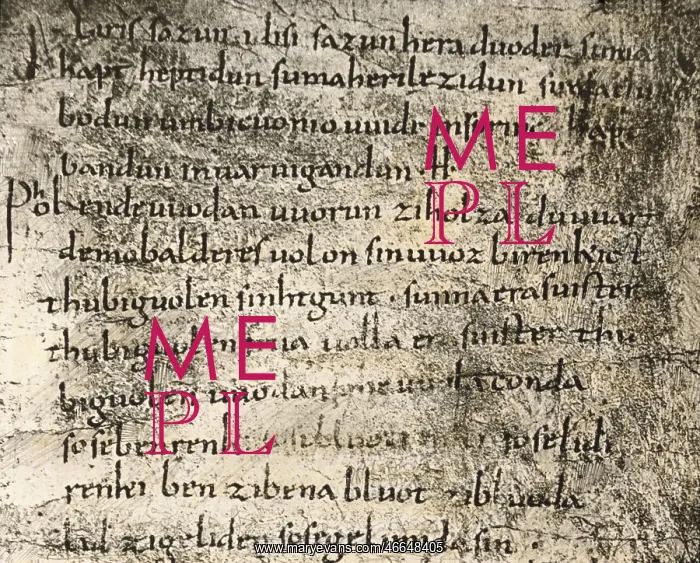 Eiris sazun idisi sazun hera duoder suma
hapt heptidun suma heri lezidun suma
bodun umbicuonio uuidi insprinc hapt
bandun inuar uigandun. H
Phol ende uuodan uuorun zi holza du uuart
demo balderes uolon sin uuoz birenkict
thu biguolen sinhtgunt . sunna era suister
thu biguolen uolla era suister thu
biguolen uuodan uuola conda
sose benrenki sose lidi
renki ben zi bena bluot zi bluoda
lid zi geliden sose gelimida sin .
ME
PL
ME
PL
www.maryevans.com/46648405